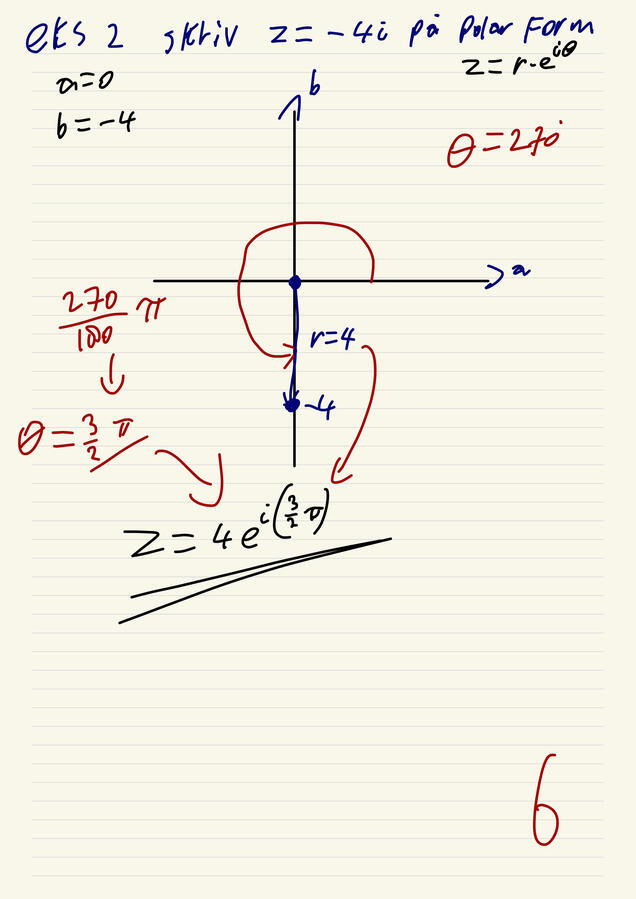 eks 2 skriv z = -4i på polar form
z = r·e^{iθ}
a=0
b = -4
b
θ = 270°
a
270/180 π
r=4
-4
θ = 3/2 π
z = 4e^{i(3/2 π)}
6